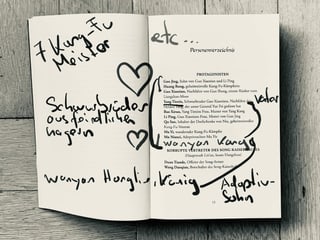 7 Kung-Fu
Meister
Schwurbrüder
aus feindlichen
Lagern
wanyan Hongli
, König
etc...
Personenverzeichnis
PROTAGONISTEN
Guo Jing, Sohn von Guo Xiaotian und Li Ping
Huang Rong, geheimnisvolle Kung-Fu-Kämpferin
Guo Xiaotian, Nachfahre von Guo Sheng, einem Helden vom
Yang Tiexin, Schwurbruder Guo Xiaotians, Nachfahre von
Bao Xiruo, Yang Tiexins Frau, Mutter von Yang
Li Ping, Guo Xiaotians Frau, Mutter von Guo Jing
Qu San, Inhaber der Dorfschenke von Niu, geheimnisvoller
Kung-Fu-Meister
Mu Yi, wandernder Kung-Fu-Kämpfer
Mu Nianci, Adoptivtochter Mu Yis
wanyan Kang
KORRUPTE VERTRETER DES SONG-KAISERREICHS
(Hauptstadt Lin'an, heute Hangzhou)
Duan Tiande, Offizier der Song-Armee
Wang Daoqian, Beschaffer der Song-
Vater
Adoptiv-
Sohn